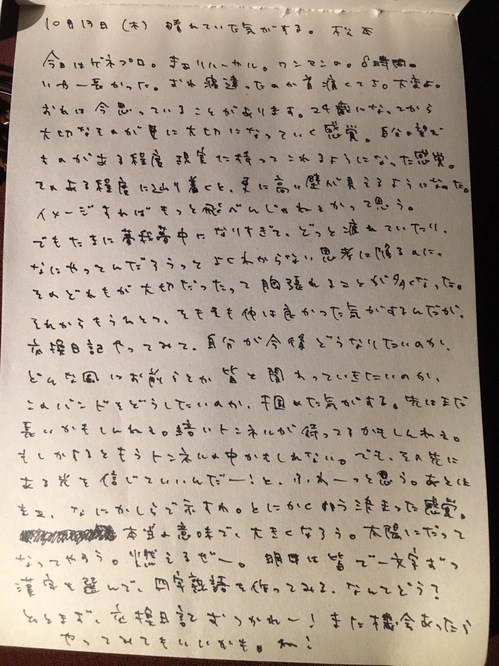 10月13日(木) 晴れていた気がする。 松本
今日はゲネプロ。まぁリハーサル。ワンマンの。8時間。
いやー長かった。おれ寝違ったのか首痛くてよ。大変よ。
おれは今思っていることがあります。24歳になってから
大切なものが更に大切になっていく感覚。自分の望む
ものがある程度現実に持ってこれるようになった感覚。
そのある程度に辿り着くと、更に高い壁が見えるようになった。
イメージすればもっと飛べんじゃねぇかって思う。
でもたまに無我夢中になりすぎて、どっと疲れていたり、
なにやってんだろうってよくわからない思考に陥るのに、
そのどれもが大切だったって胸張れることが多くなった。
それからもうひとつ、そもそも他は良かった気がするんだが、
交換日記やってみて、自分が今後どうなりたいのか、
どんな風にお前らとか皆と関わっていきたいのか、
このバンドをどうしたいのか、固めた気がする。先はまだ
長いかもしんねぇ。暗いトンネルが待ってるかもしんねぇ。
もしかするともうトンネルの中かもしれない。でも、その先に
ある光を信じていいんだー!と、ふわーっと思う。あとは
まぁ、なにかしらで示すわ。とにかく 決まった感覚。
本当の意味で、大きくなろう。太陽にだって
なってやろう。燃えるぜー。明日は皆で一文字ずつ
漢字を選んで、四字熟語を作ってみる、なんてどう?
ひとまず、交換日記おつかれー!また機会あったら
やってみてもいいかも。ね!